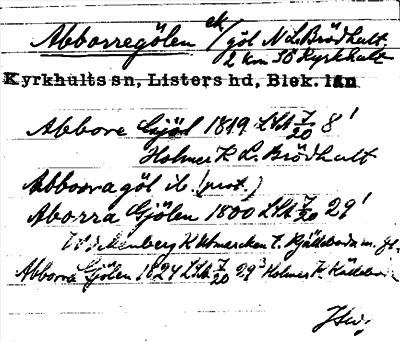 Abborregölen ek/göl N L. Brödhult
2 km SO Kyrkhult
Kyrkhults sn, Listers hd, Blek. län
Abbore Gjöl 1819 LSA 7/20 8'
Holmer K L. Brödhult
Abborragöl ib. (prot.)
Aborra Gjölen 1800 LSA 7/20 29'
K Utmarcken t. Kjätteboda m. fl.
Abborra Gjölen 1824 LSA 7/20 29³ Holmer K Kätteboda